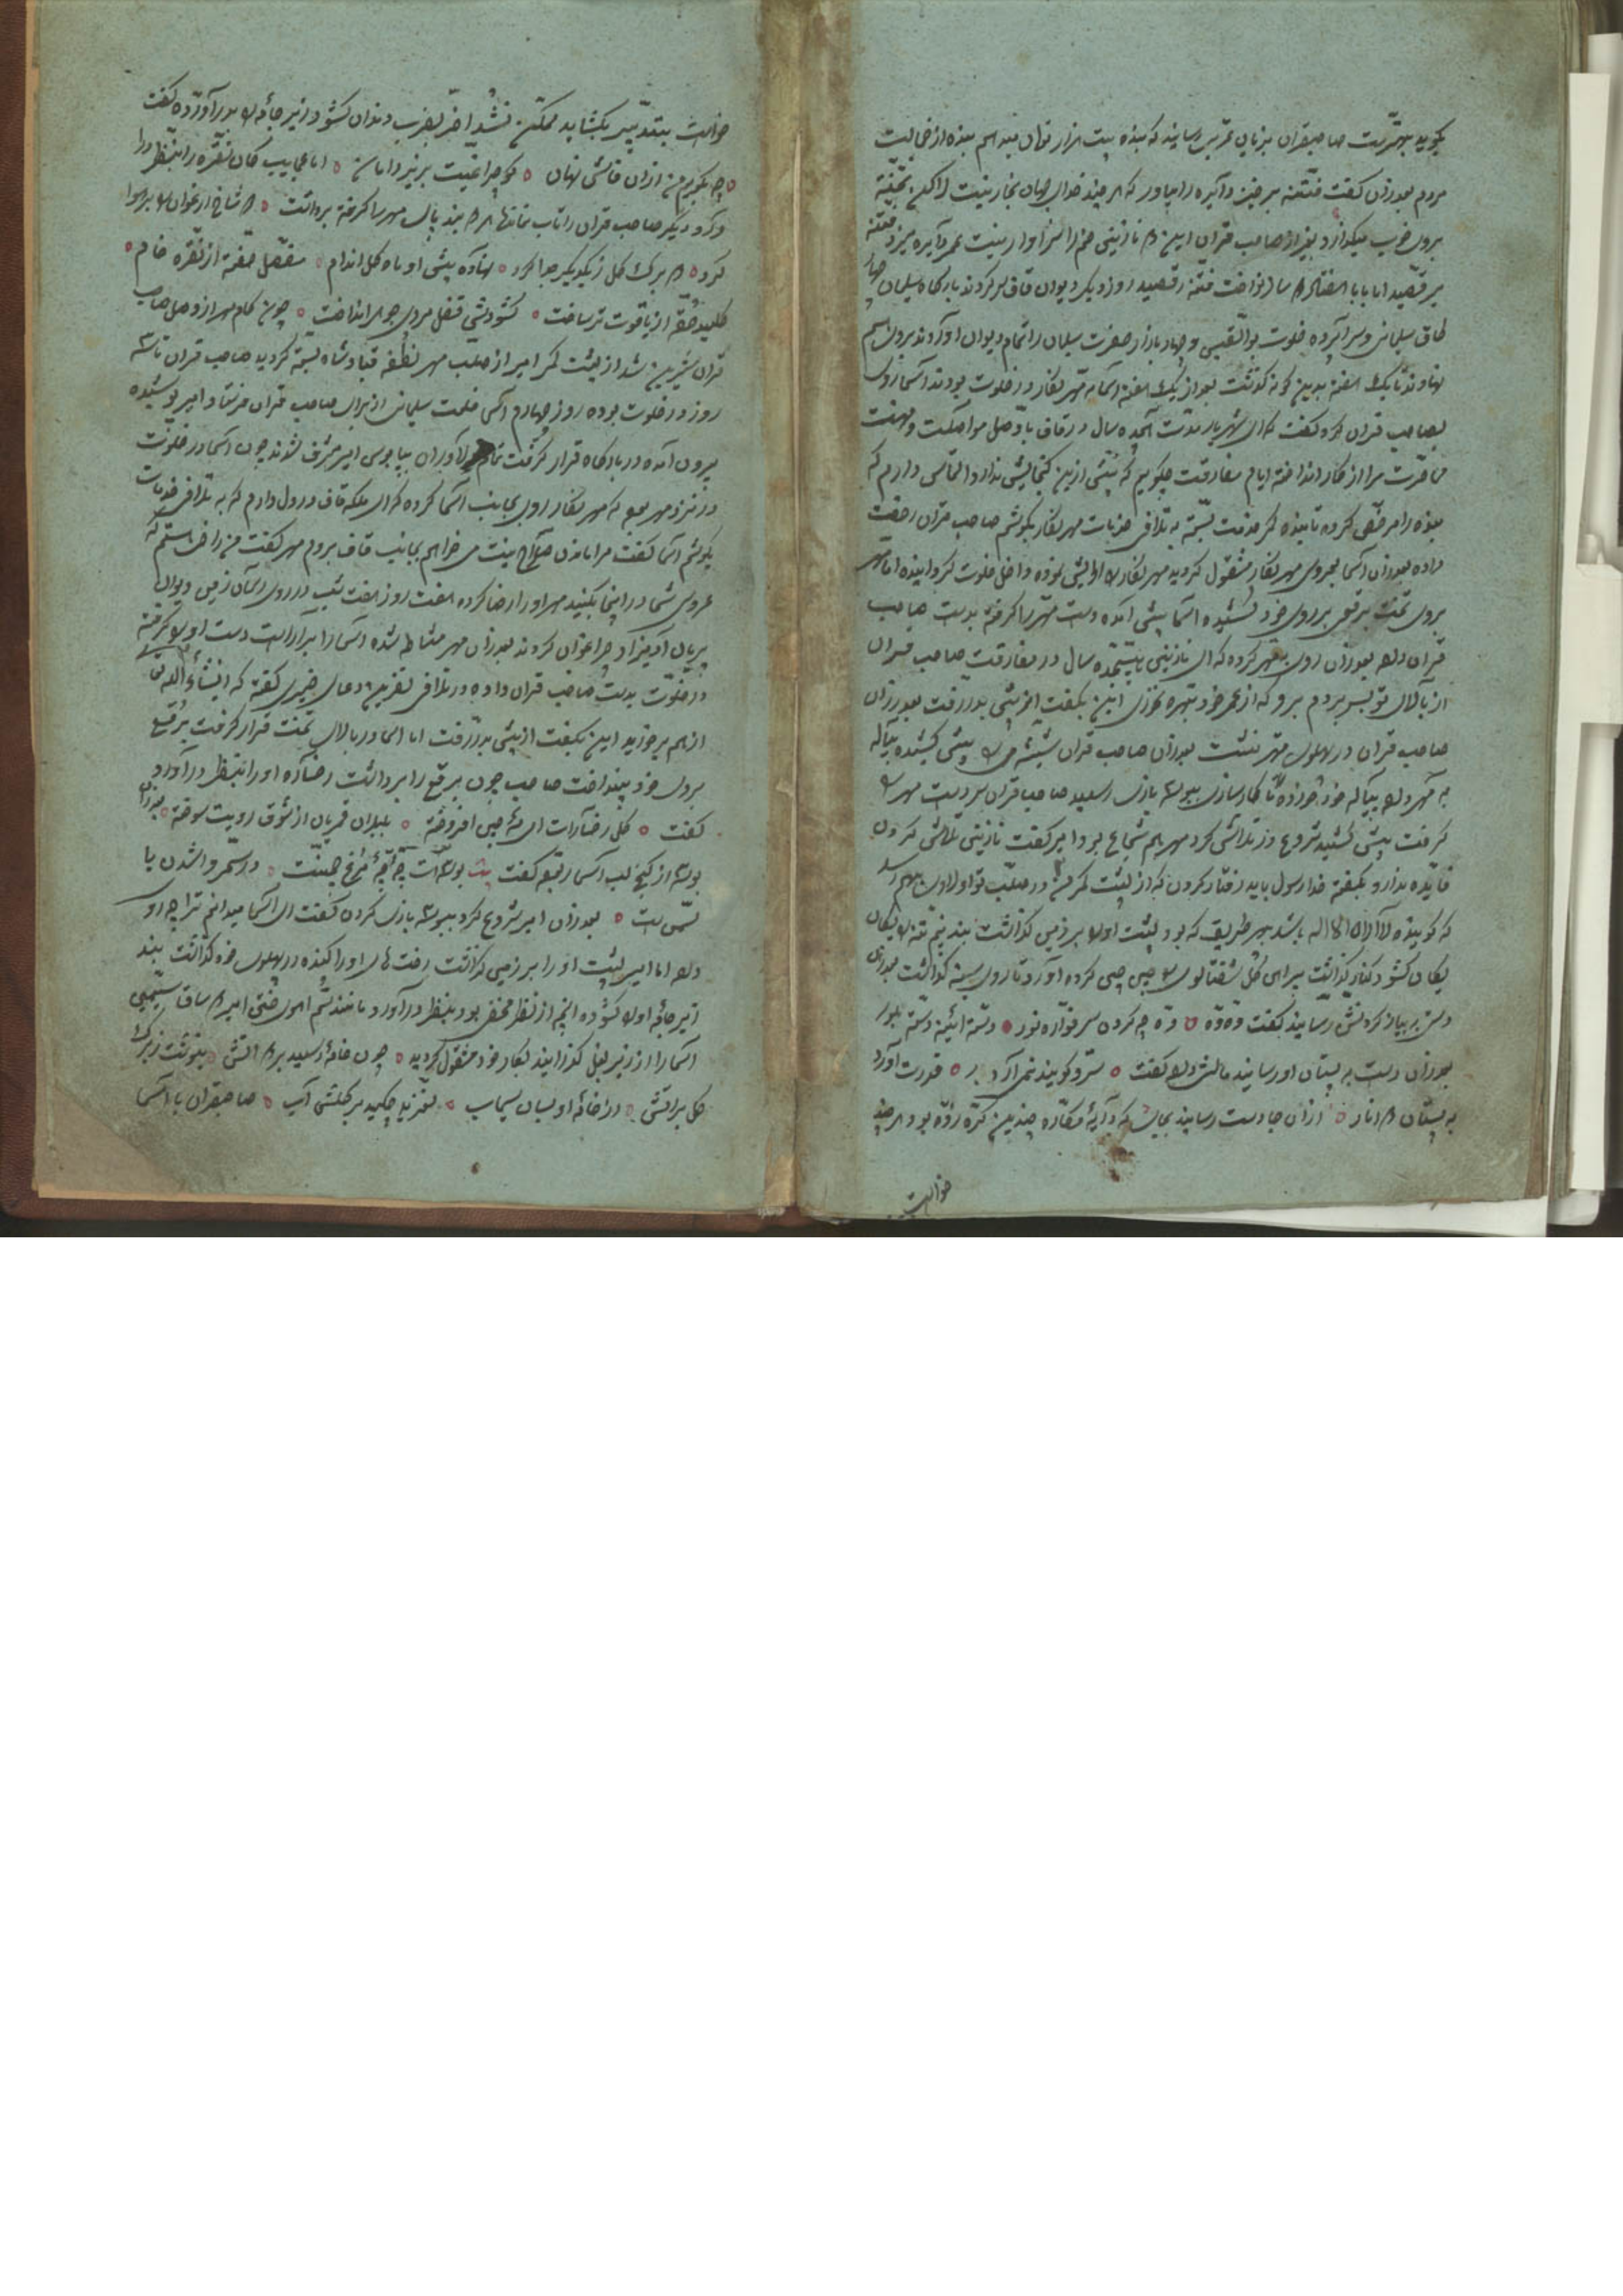 بگوید بهتر است صاحبقران بزبان عربی رسانید که بنده بیست هزار تومان میدهم بنده از خجالت
مردم بعد از آن گفت فتنه برخیز و آئیره را بیاور که هر چند خدای جهان بخاریست
بروی خوب میگذارد بغیر از صاحب قران این نازنینی هم را سزاوار نیست عمر دایره میزد فتنه
میرقصید اما بابا ساز نواخت فتنه رقصید روز دیگر دیوان قاف سر کردند بارگاه سلیمان چهار
طاق سلیمانی و سراپرده خلوت بوالقیس و چهار بازار حضرت سلیمان را تمام دیوان آوردند بروی هم
نهادند تا یک هفته بدین گونه گذشت بعد از یک هفته اسما به مهرنگار در خلوت بودند اسما روی
بصاحب قران کرد گفت که ای شهریار مدت هجده سال در قاف با وصل مواصلت
مفارقت مرا از کار انداخته ایام مفارقت چگویم که بیش ازین گنجایش ندارد التماسی دارم که
بنده را مرخص کرده تا بنده کمر خدمت بسته به تلافی خدمات مهرنگار بکوشم صاحب قران رخصت
داده بعد از آن اسما بعروسی مهرنگار مشغول گردید مهرنگار را آرایش نموده داخل خلوت گردانیده اما مهر
بروی تخت برقعی بر روی خود کشیده اسما پیش آمده دست مهر را گرفته بدست صاحب
قران داد بعد از آن روی بمهر کرده که ای نازنین هجده سال در مفارقت صاحب قران
از بالای تو بسر بردم برو که از عمر خود بهره بخوری این بگفت از پیش بدر رفت بعد از آن
صاحب قران در پهلوی مهر نشست بعد از آن صاحب قران شیشه می را پیش کشیده پیاله
به مهر داد پیاله خود خورده تا کار سازی ببوسه بازی رسید صاحبقران سر دست مهر را
گرفت پیش کشید شروع در تلاش کرد مهر هم شجاع بود امیر گفت نازنین تلاش کردن
فایده ندارد بگفته خدا رسول باید رفتار کردن که از پشت کمر من در صلب تو اولاد بهم رسد
که گوینده لا اله الا الله باشد بهر طریق که بود پشت او را بر زمین گذاشت بند نیم تنه را یکان
یکان کشود کنار گذاشت پیراهن گل شفتالوی را چین چین کرده آورد تا روی سینه گذاشت بعد از آن
دستی به بیاز گردنش رسانید گفت وه وه وه چه گردن سر فواره نور دسته آئینه دسته بلور
بعد از آن دست به پستان او رسانید مالش داد گفت سرو گویند ثمر آرد بر قدرت آورد
به پستان انار از آن جا دست رسانید بجای که دایه مکاره چندین گره زده بود هر چند
خواست
خواست بتدبیر بگشاید ممکن نشد آخر بضرب دندان کشود زیر جامه را بدر آورده گفت
چه بگویم من از آن فاش نهان کو چراغیست بزیر دامان اما عجایب کان نقره را بنظر در
کرد دیگر صاحب قران را تاب نماند بند پای مهر را گرفته برداشت شاخ ارغوان را بر هوا
کرد برگ گل ز یکدیگر جدا کرد نهاده پیش او ماه گل اندام مفصل حقه از نقره خام
کلید حقه از یاقوت تر ساخت کشودش قفل مروی جوهر انداخت چون کام مهر از وصل صاحب
قران شیرین شد از پشت کمر امیر از صلب مهر نطفه قباد شاه بسته گردید صاحب قران تا سه
روز در خلوت بوده روز چهارم اسما خلعت سلیمانی از برای صاحب قران فرستاد امیر پوشیده
بیرون آمده در بارگاه قرار گرفت تمام دلاوران بپابوسی امیر مشرف شدند چون اسما در خلوت
در نزد مهر بود که مهرنگار روی بجانب اسما کرده که ای ملکه قاف در دل دارم که به تلافی خدمات
بکوشم اسما گفت مرا ماندن صلاح نیست می خواهم بجانب قاف بروم مهر گفت من راضی هستم که
عروسی شما در اینجا بکنید مهر او را رضا کرده هفت روز هفت شب در روی آسمان زمین دیوان
پریان آدمیزاد چراغان کردند بعد از آن مهر مشاطه شده اسما را بر آراست دست او را گرفته
در خلوت بدست صاحب قران داده در تلافی نفرین دعای خیری گفته که انشاء الله تعالی
از هم برخورید این بگفت از پیش بدر رفت اما اسما در بالای تخت قرار گرفت برقع
بروی خود بینداخت صاحب چون برقع را برداشت رخساره او را بنظر درآورد
گفت گل رخسارات ای مه جبین افروخته بلبلان قمریان از شوق رویت سوخته بعد از آن
بوسه از کنج لب اسما ربوده گفت بیت بوسه است چه غنچه مرغ چمنست در سحر وا شدن با
نمیست بعد از آن امیر شروع کرد ببوسه بازی کردن گفت ای اسما میدانم ترا چه او
داد اما امیر پشت او را بر زمین گذاشت رخت های او را کنده در پهلوی خود گذاشت بند
زیر جامه او را کشوده آنچه از نظر مخفی بود بنظر درآورد مانند سم آهوی ختن امیر ساق سیمین
اسما را از زیر بغل گذرانید بکار خود مشغول گردید چون خامه رسید بر آتش بنوشت ز برگ
گل برآتش در خانه او بسان سیماب لغزید چکید بر گلش آب صاحبقران با اسما